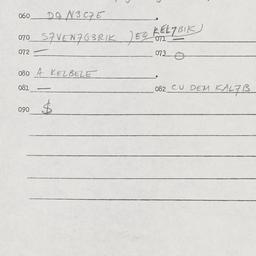 060 DQ N3C7E
KEL7BIK)
070 S7VEN7G3RIK )EQ 071 —
072 — 073 O
080 A KELBELE
081 — 082 CU DEM KAL7B
090 $